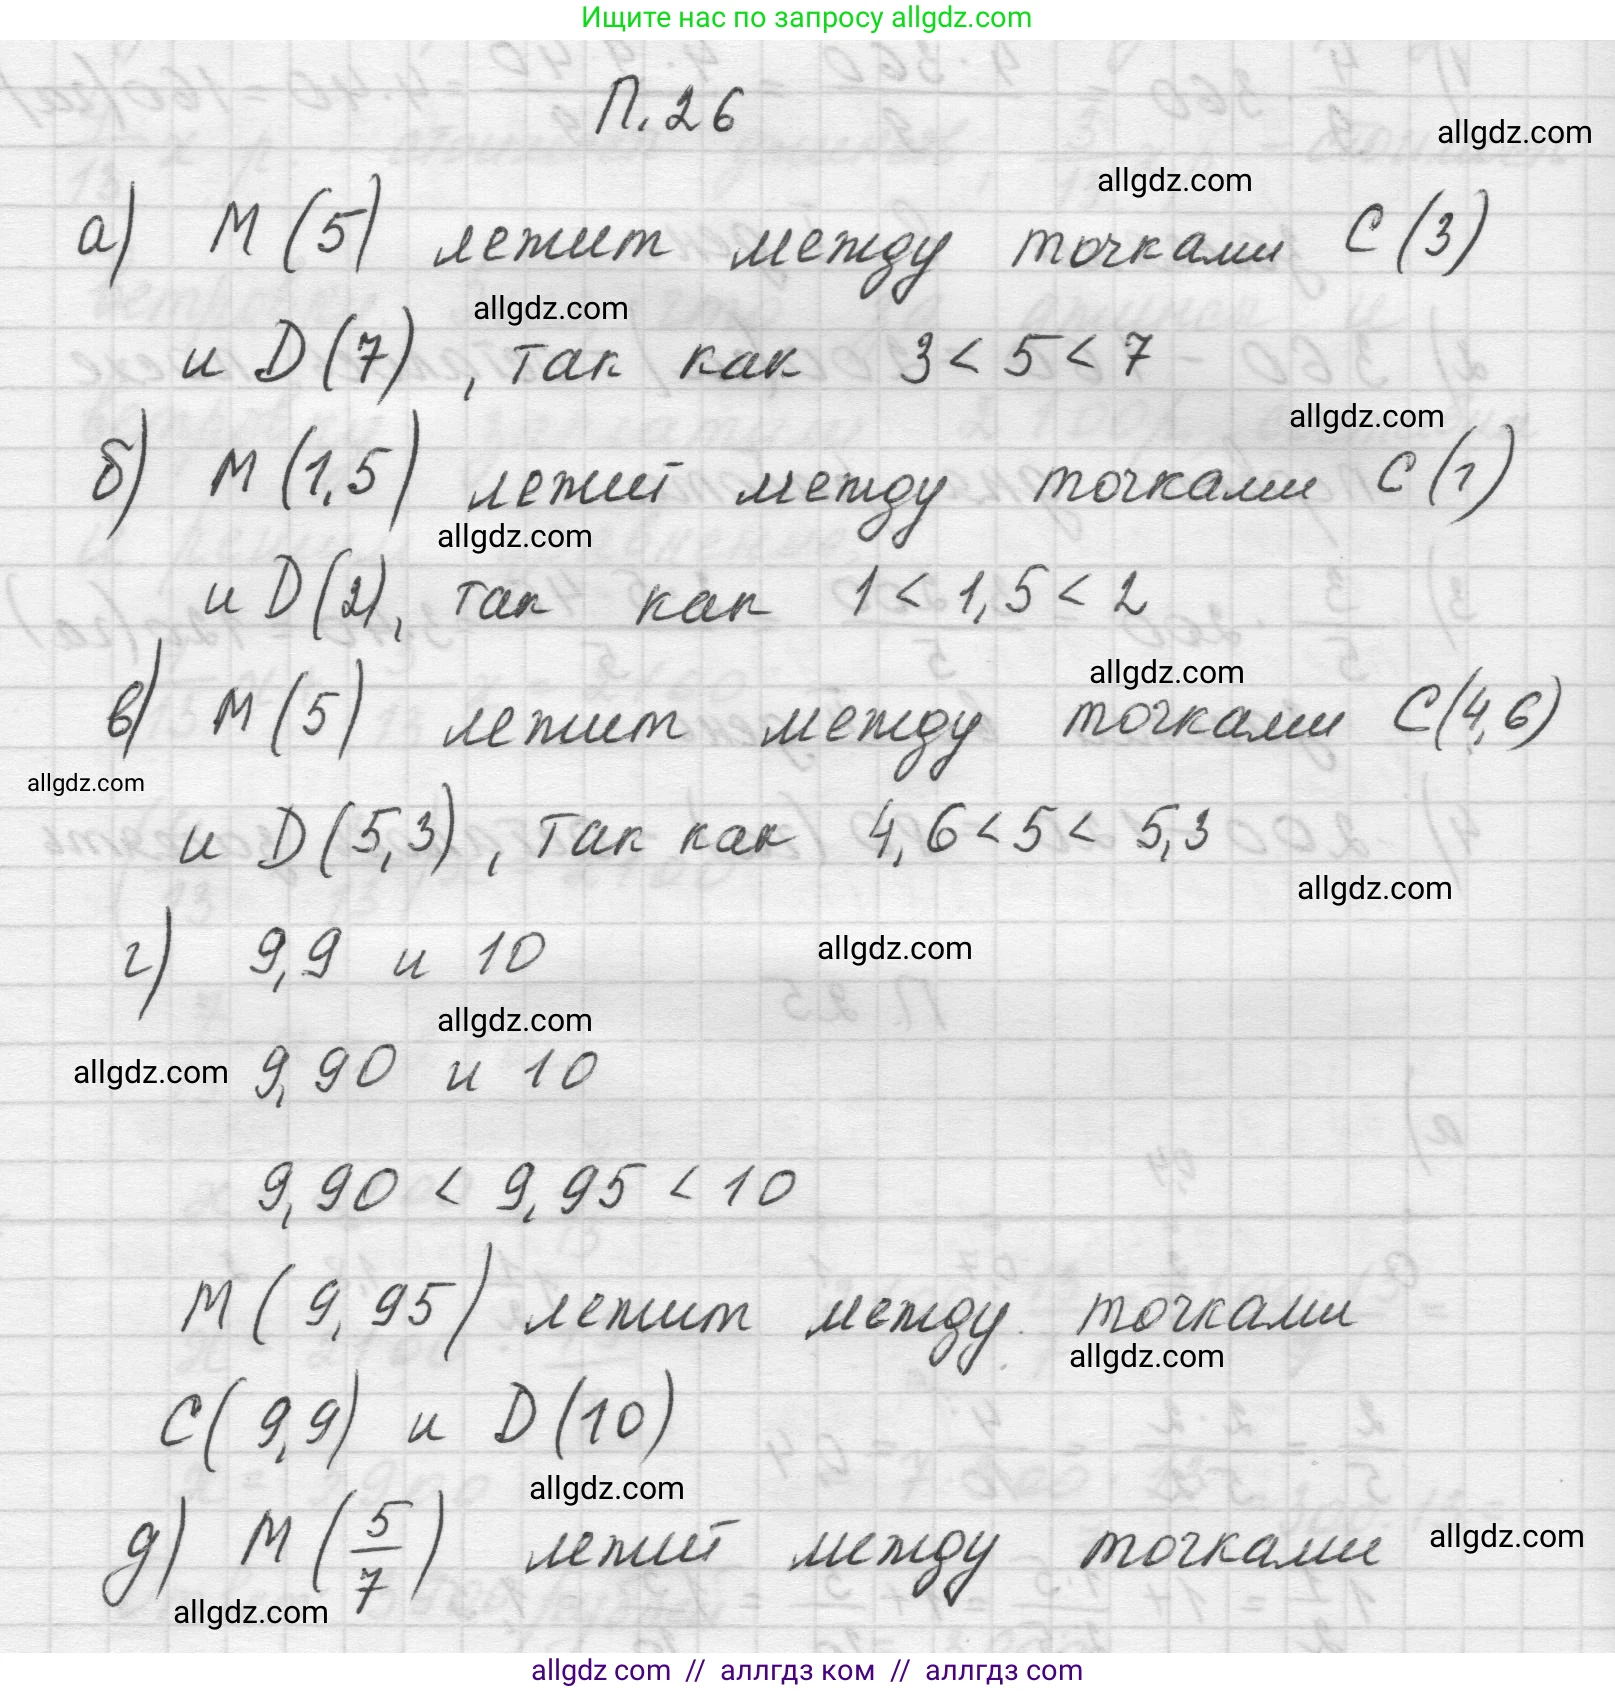 Ищите нас по запросу allgdz.com
П.26
allgdz.com
allgdz.com
а) М(5) лежит между точками С(3)
allgdz.com
и D(7), так как 3 < 5 < 7
allgdz.com
б) М(1,5) лежит между точками С(1)
allgdz.com
и D(2), так как 1 < 1,5 < 2
allgdz.com
в) М(5) лежит между точками С(4,6)
allgdz.com
и D(5,3), так как 4,6 < 5 < 5,3
allgdz.com
г) 9,9 и 10
allgdz.com
allgdz.com
allgdz.com
9,90 и 10
9,90 < 9,95 < 10
М(9,95) лежит между точками
allgdz.com
С(9,9) и D(10)
allgdz.com
д) М(5/7) лежит между точками
allgdz.com
allgdz.com
allgdz com // аллгдз ком // аллгдз com